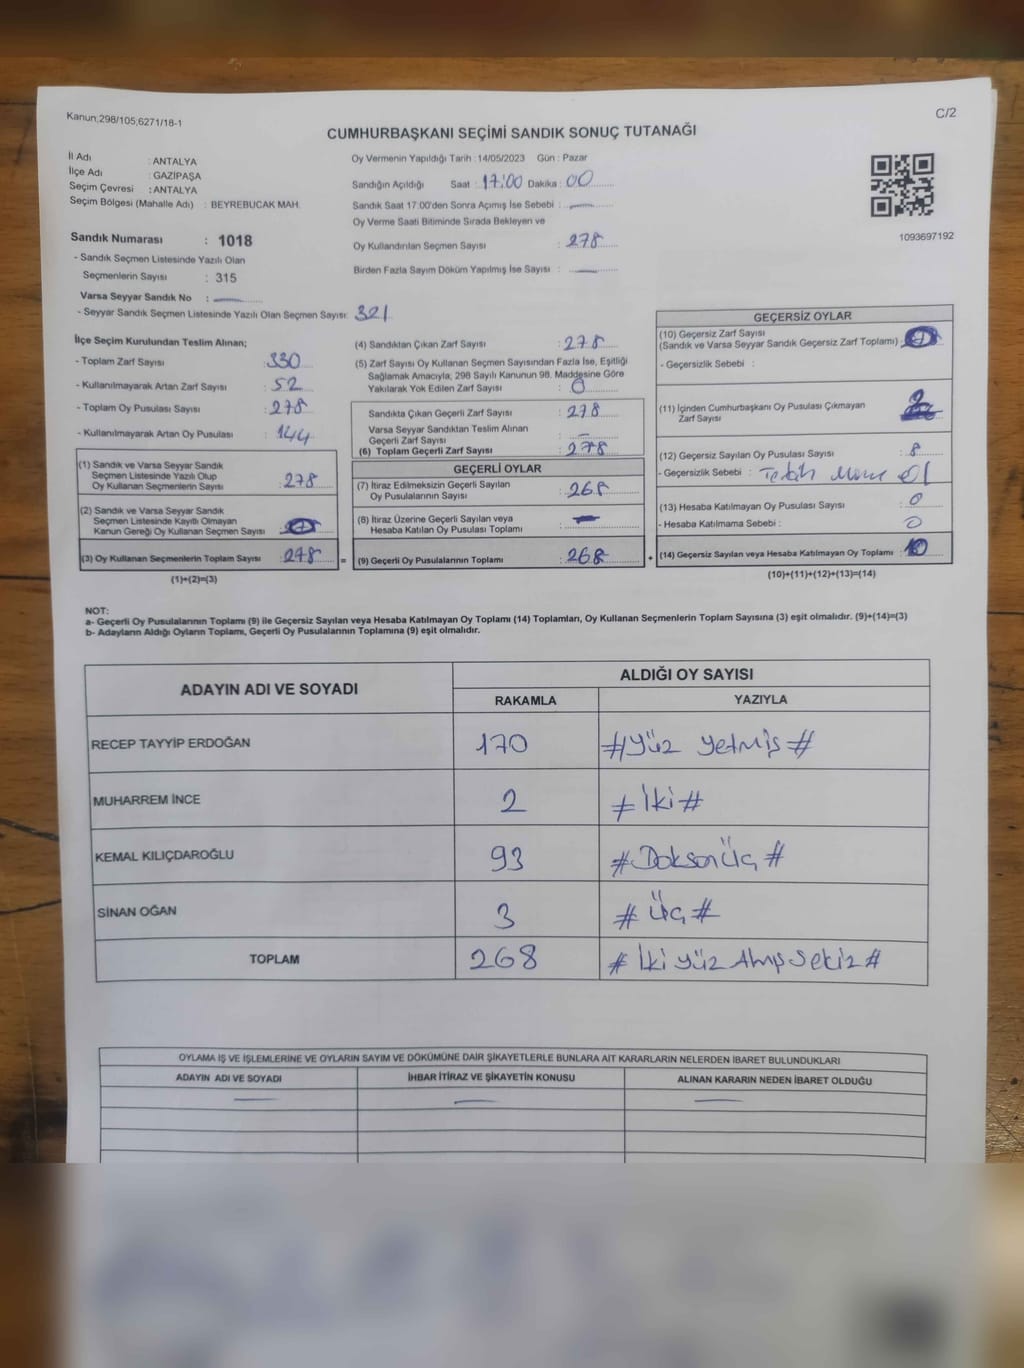 Kanun;298/105;6271/18-1
C/2
CUMHURBAŞKANI SEÇİMİ SANDIK SONUÇ TUTANAĞI
İl Adı : ANTALYA
İlçe Adı : GAZİPAŞA
Seçim Çevresi : ANTALYA
Seçim Bölgesi (Mahalle Adı) : BEYREBUCAK MAH.
Oy Vermenin Yapıldığı Tarih : 14/05/2023 Gün : Pazar
Sandığın Açıldığı Saat : 17:00 Dakika : 00
Sandık Saat 17:00'den Sonra Açımış İse Sebebi :
Oy Verme Saati Bitiminde Sırada Bekleyen ve
Oy Kullandırılan Seçmen Sayısı : 278
Birden Fazla Sayım Döküm Yapılmış İse Sayısı :
1093697192
Sandık Numarası : 1018
- Sandık Seçmen Listesinde Yazılı Olan
Seçmenlerin Sayısı : 315
Varsa Seyyar Sandık No :
- Seyyar Sandık Seçmen Listesinde Yazılı Olan Seçmen Sayısı: 321
İlçe Seçim Kurulundan Teslim Alınan;
- Toplam Zarf Sayısı : 330
- Kullanılmayarak Artan Zarf Sayısı : 52
- Toplam Oy Pusulası Sayısı : 278
- Kullanılmayarak Artan Oy Pusulası : 144
(1) Sandık ve Varsa Seyyar Sandık
Seçmen Listesinde Yazılı Olup
Oy Kullanan Seçmenlerin Sayısı : 278
(2) Sandık ve Varsa Seyyar Sandık
Seçmen Listesinde Kayıtlı Olmayan
Kanun Gereği Oy Kullanan Seçmen Sayısı :
(3) Oy Kullanan Seçmenlerin Toplam Sayısı : 278 =
(1)+(2)=(3)
(4) Sandıktan Çıkan Zarf Sayısı : 278
(5) Zarf Sayısı Oy Kullanan Seçmen Sayısından Fazla İse, Eşitliği
Sağlamak Amacıyla, 298 Sayılı Kanunun 98. Maddesine Göre
Yakılarak Yok Edilen Zarf Sayısı : 0
Sandıkta Çıkan Geçerli Zarf Sayısı : 278
Varsa Seyyar Sandıktan Teslim Alınan
Geçerli Zarf Sayısı : -
(6) Toplam Geçerli Zarf Sayısı : 278
GEÇERLİ OYLAR
(7) İtiraz Edilmeksizin Geçerli Sayılan
Oy Pusulalarının Sayısı : 268
(8) İtiraz Üzerine Geçerli Sayılan veya
Hesaba Katılan Oy Pusulası Toplamı :
(9) Geçerli Oy Pusulalarının Toplamı : 268 +
GEÇERSİZ OYLAR
(10) Geçersiz Zarf Sayısı
(Sandık ve Varsa Seyyar Sandık Geçersiz Zarf Toplamı) :
- Geçersizlik Sebebi :
(11) İçinden Cumhurbaşkanı Oy Pusulası Çıkmayan
Zarf Sayısı : 2
(12) Geçersiz Sayılan Oy Pusulası Sayısı : 8
- Geçersizlik Sebebi :
(13) Hesaba Katılmayan Oy Pusulası Sayısı : 0
- Hesaba Katılmama Sebebi : 0
(14) Geçersiz Sayılan veya Hesaba Katılmayan Oy Toplamı : 10
(10)+(11)+(12)+(13)=(14)
NOT:
a- Geçerli Oy Pusulalarının Toplamı (9) ile Geçersiz Sayılan veya Hesaba Katılmayan Oy Toplamı (14) Toplamları, Oy Kullanan Seçmenlerin Toplam Sayısına (3) eşit olmalıdır. (9)+(14)=(3)
b- Adayların Aldığı Oyların Toplamı, Geçerli Oy Pusulalarının Toplamına (9) eşit olmalıdır.
ADAYIN ADI VE SOYADI ALDIĞI OY SAYISI
RAKAMLA YAZIYLA
RECEP TAYYİP ERDOĞAN 170 #yüz yetmiş#
MUHARREM İNCE 2 #iki#
KEMAL KILIÇDAROĞLU 93 #Doksanüç#
SİNAN OĞAN 3 #üç#
TOPLAM 268 #iki yüz Atmışsekiz#
OYLAMA İŞ VE İŞLEMLERİNE VE OYLARIN SAYIM VE DÖKÜMÜNE DAİR ŞİKAYETLERLE BUNLARA AİT KARARLARIN NELERDEN İBARET BULUNDUKLARI
ADAYIN ADI VE SOYADI İHBAR İTİRAZ VE ŞİKAYETİN KONUSU ALINAN KARARIN NEDEN İBARET OLDUĞU